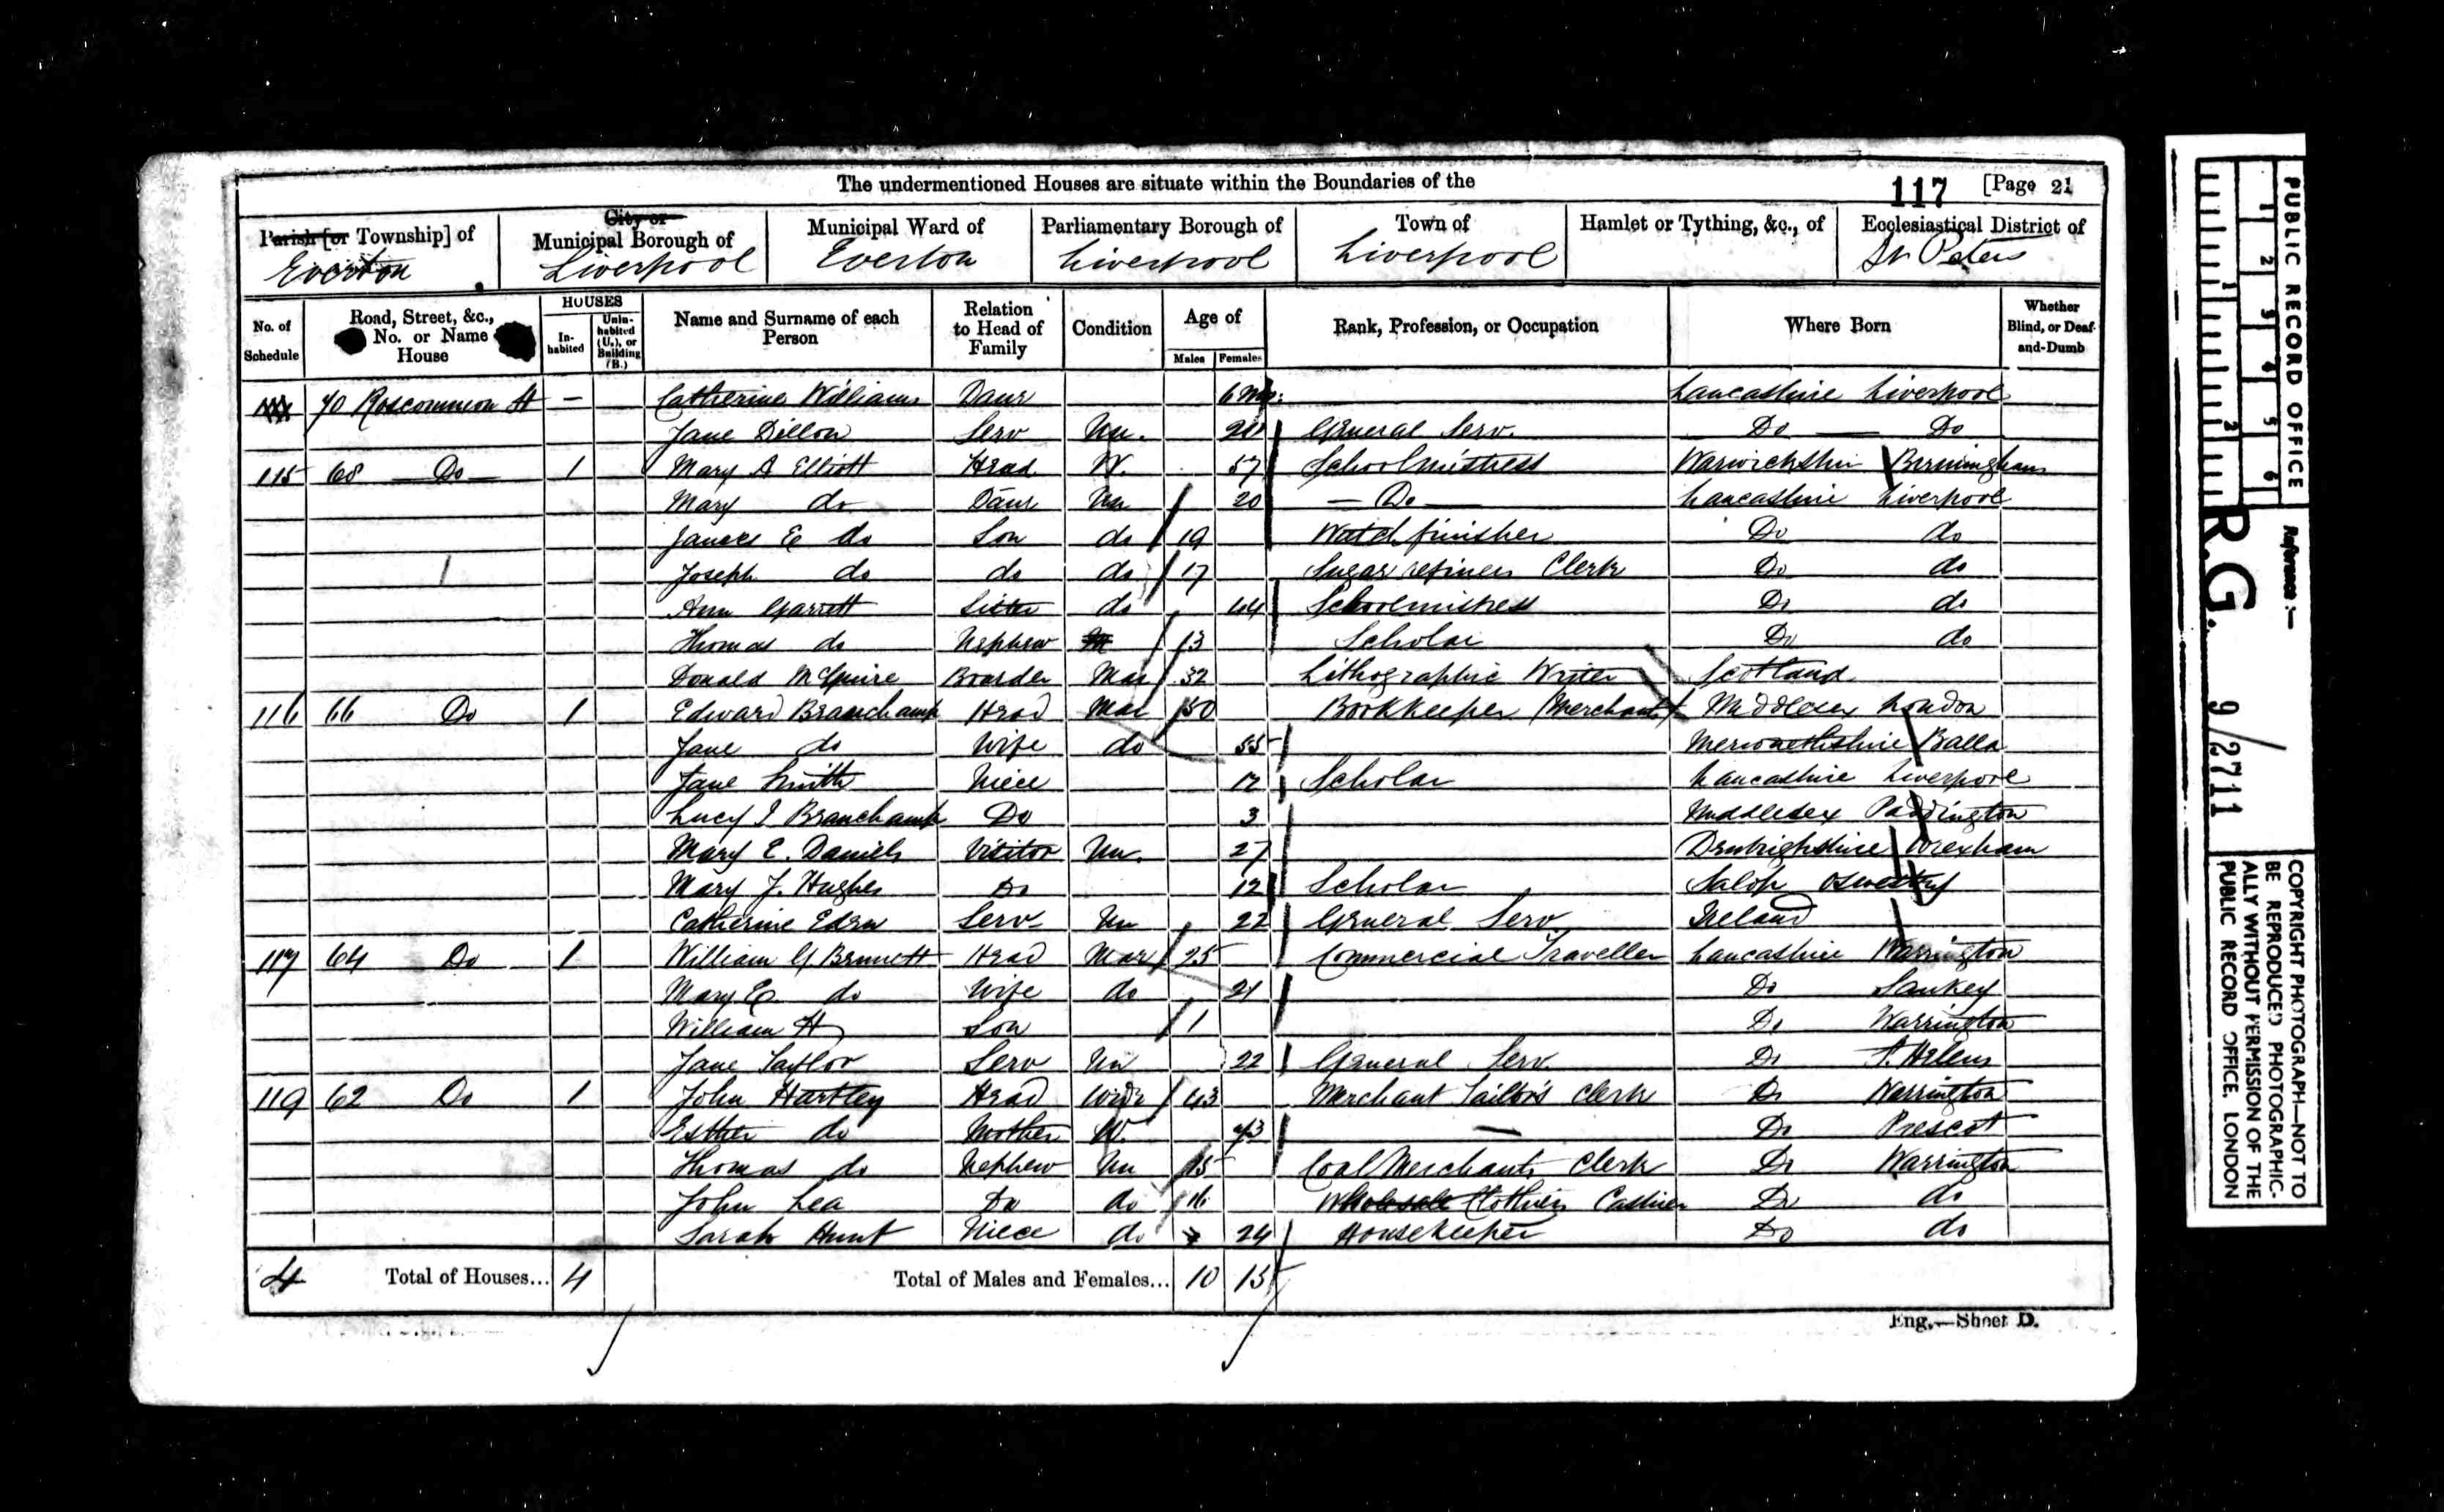 The undermentioned Houses are situate within the Boundaries of the 117 [Page 21
Parish [or Township] of City or Municipal Borough of Municipal Ward of Parliamentary Borough of Town of Hamlet or Tything, &c., of Ecclesiastical District of
Everton Liverpool Everton Liverpool Liverpool St Peters
No. of Schedule Road, Street, &c., No. or Name House HOUSES In-habited Unin-habited (U.), or Building (B.) Name and Surname of each Person Relation to Head of Family Condition Age of Males Females Rank, Profession, or Occupation Where Born Whether Blind, or Deaf-and-Dumb
70 Roscommon St — Catherine Williams Daur 6 Mo: Lancashire Liverpool
Jane Dillon Serv Un. General Serv. Do — Do
115 68 — Do — 1 Mary A Elliott Head W. 57 Schoolmistress Warwickshire Birmingham
Mary do Daur Un 20 — Do — Lancashire Liverpool
James E do Son do 19 Watch finisher Do do
Joseph do do do 17 Sugar refiners Clerk Do do
Ann Garrett Sister do 44 Schoolmistress Do do
Thomas do Nephew 13 Scholar Do do
Donald McGuire Boarder Mar 32 Lithographic Writer Scotland
116 66 Do 1 Edward Branchamp Head Mar 50 Bookkeeper (Merchants) Middlesex London
Jane do Wife do 55 Merionethshire Balla
Jane Smith Niece Scholar Lancashire Liverpool
Lucy J Branchamp Do 3 Middlesex Paddington
Mary E. Daniels Visitor Un. 27 Denbighshire Wrexham
Mary J. Hughes Do 12 Scholar Salop Oswestry
Catherine Eden Serv Un 22 General Serv. Ireland
117 64 Do 1 William G Bennett Head Mar 25 Commercial Traveller Lancashire Warrington
Mary E. do Wife do 21 Do Sankey
William H Son 1 Do Warrington
Jane Taylor Serv Un 22 General Serv. Do St. Helens
119 62 Do 1 John Hartley Head Widr 43 Merchant Tailor's Clerk Do Warrington
Esther do Mother W. 73 — Do Prescot
Thomas do Nephew Un 15 Coal Merchants Clerk Do Warrington
John Lea Do do 16 Wholesale Clothiers Cashier Do do
Sarah Hunt Niece do 24 Housekeeper Do do
4 Total of Houses... 4 Total of Males and Females... 10 15
Eng.—Sheet D.
PUBLIC RECORD OFFICE
1 2 3 4 5 6
1 2
Reference:—
R.G. 9/2711
COPYRIGHT PHOTOGRAPH—NOT TO
BE REPRODUCED PHOTOGRAPHIC-
ALLY WITHOUT PERMISSION OF THE
PUBLIC RECORD OFFICE, LONDON